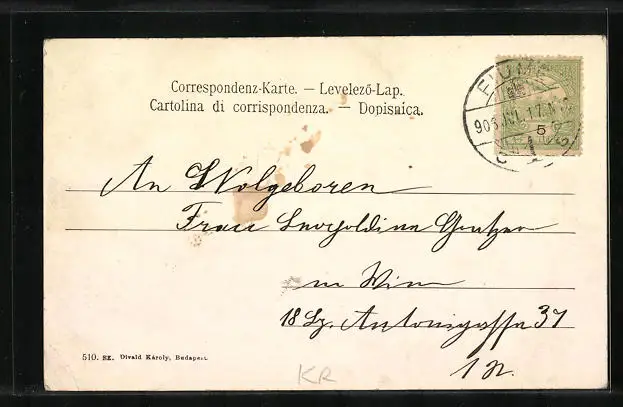 Correspondenz-Karte. — Levelező-Lap.
Cartolina di corrispondenza. — Dopisnica.
FIUME
903 JUL. 17.
5
An Wolgeboren
Frau Leopoldine
in Wien
18 Bz. Antonigasse 37
510. SZ. Divald Károly, Budapest.
KR